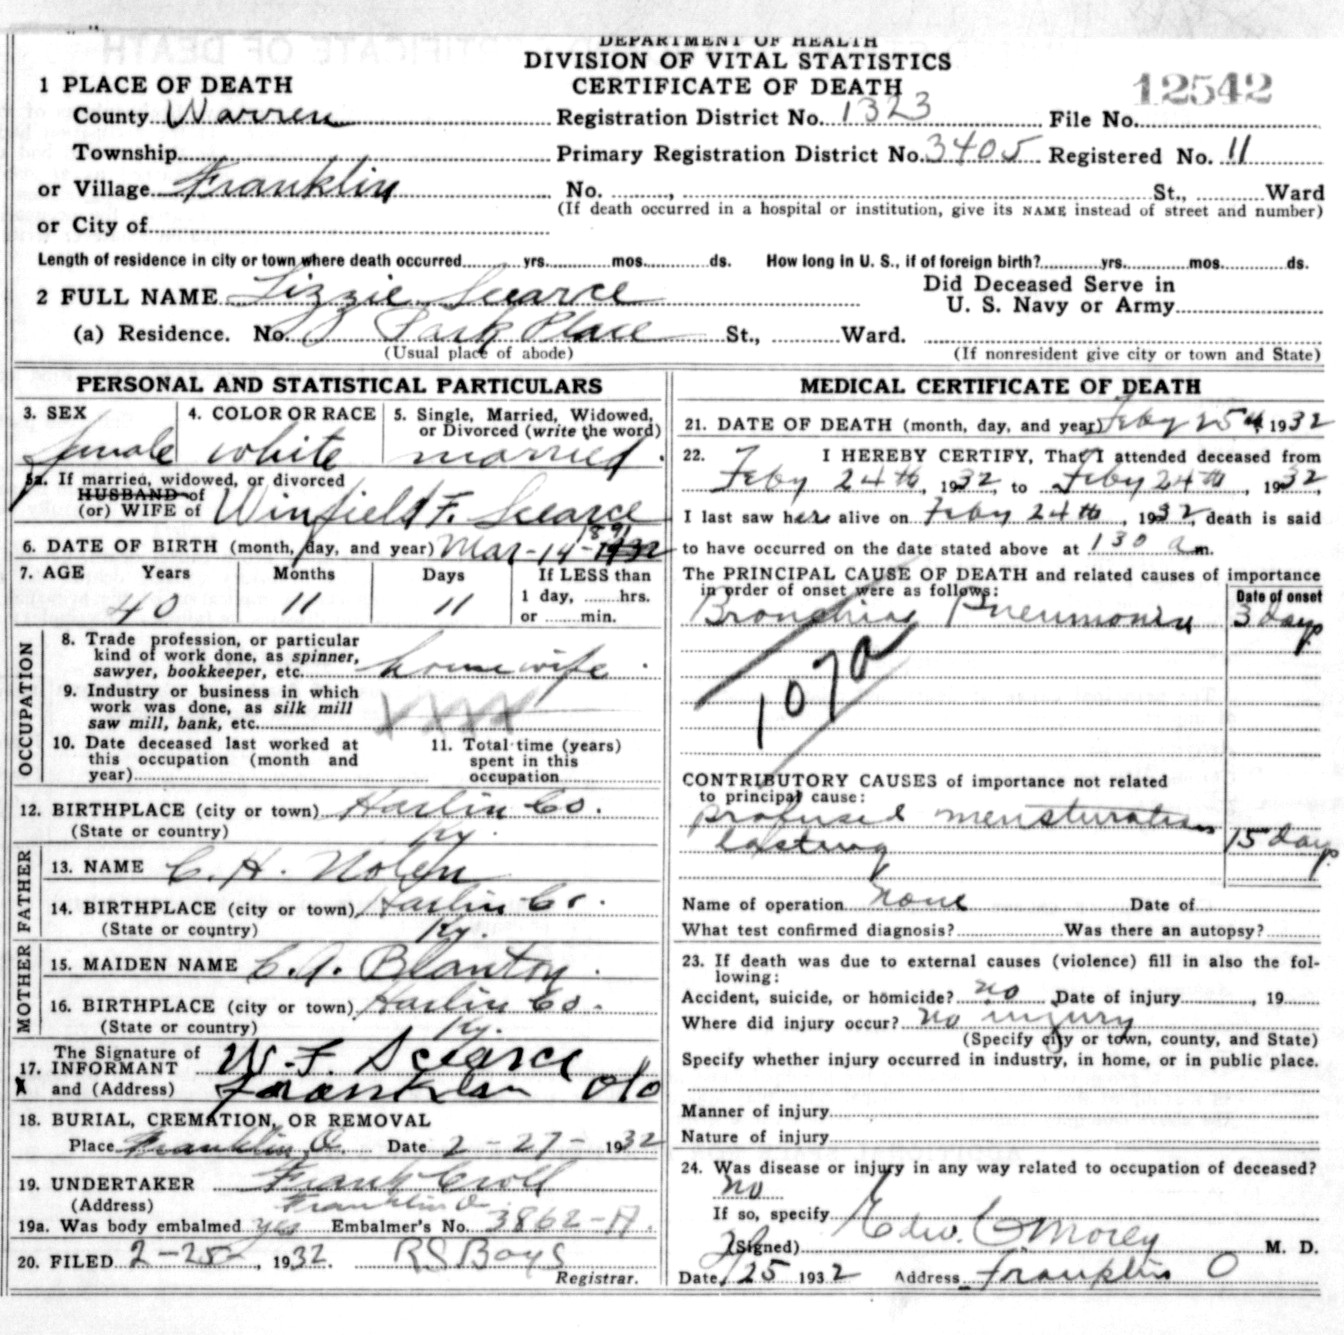 DEPARTMENT OF HEALTH
DIVISION OF VITAL STATISTICS
CERTIFICATE OF DEATH
12542
1 PLACE OF DEATH
County Warren Registration District No. 1323 File No.
Township Primary Registration District No. 3405 Registered No. 11
or Village Franklin No. , St., Ward
(If death occurred in a hospital or institution, give its NAME instead of street and number)
or City of
Length of residence in city or town where death occurred yrs. mos. ds. How long in U. S., if of foreign birth? yrs. mos. ds.
2 FULL NAME Lizzie Scearce Did Deceased Serve in U. S. Navy or Army
(a) Residence. No. Park Place St., Ward.
(Usual place of abode) (If nonresident give city or town and State)
PERSONAL AND STATISTICAL PARTICULARS
3. SEX female
4. COLOR OR RACE white
5. Single, Married, Widowed, or Divorced (write the word) married
5a. If married, widowed, or divorced
HUSBAND of
(or) WIFE of Winfield F. Scearce
6. DATE OF BIRTH (month, day, and year) Mar-14-1891
7. AGE Years Months Days If LESS than
1 day, hrs.
or min.
40 11 11
OCCUPATION
8. Trade profession, or particular
kind of work done, as spinner,
sawyer, bookkeeper, etc. housewife
9. Industry or business in which
work was done, as silk mill
saw mill, bank, etc. XXXX
10. Date deceased last worked at
this occupation (month and
year)
11. Total time (years)
spent in this
occupation
12. BIRTHPLACE (city or town) Harlin Co.
(State or country) Ky.
FATHER
13. NAME C. H. Nolen
14. BIRTHPLACE (city or town) Harlin Co.
(State or country) Ky.
MOTHER
15. MAIDEN NAME C. A. Blanton
16. BIRTHPLACE (city or town) Harlin Co.
(State or country) Ky.
17. The Signature of
INFORMANT W. F. Scearce
X and (Address) Franklin O
18. BURIAL, CREMATION, OR REMOVAL
Place Franklin, O. Date 2-27-1932
19. UNDERTAKER Frank Croll
(Address) Franklin O.
19a. Was body embalmed yes Embalmer's No. 3862-A.
20. FILED 2-25, 1932. RS Boys
Registrar.
MEDICAL CERTIFICATE OF DEATH
21. DATE OF DEATH (month, day, and year) Feby 25th, 1932
22. I HEREBY CERTIFY, That I attended deceased from
Feby 24th, 1932, to Feby 24th, 1932,
I last saw her alive on Feby 24th, 1932, death is said
to have occurred on the date stated above at 130 a m.
The PRINCIPAL CAUSE OF DEATH and related causes of importance
in order of onset were as follows: Date of onset
Bronchial Pneumonia 3 days
107a
CONTRIBUTORY CAUSES of importance not related
to principal cause:
profused mensturation
lasting 15 days
Name of operation None Date of
What test confirmed diagnosis? Was there an autopsy?
23. If death was due to external causes (violence) fill in also the following:
Accident, suicide, or homicide? no Date of injury , 19
Where did injury occur? no injury
(Specify city or town, county, and State)
Specify whether injury occurred in industry, in home, or in public place.
Manner of injury
Nature of injury
24. Was disease or injury in any way related to occupation of deceased?
no
If so, specify
(Signed) Edw. C Morey M. D.
Date 2/25 1932 Address Franklin O